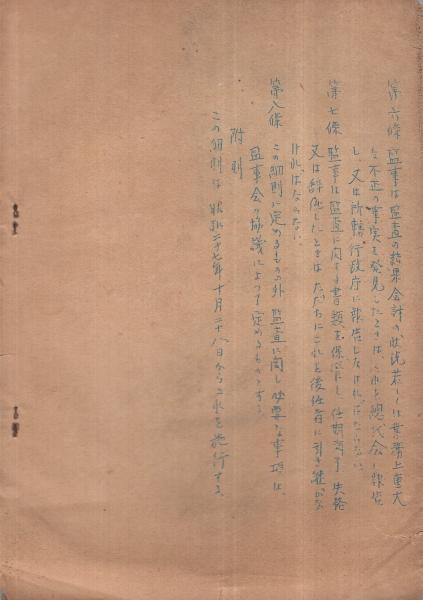 第六條 監事は監査の結果会計の状況若しくは業務上重大
な不正の事実を発見したときは、これを總代会に報告
し、又は所轄行政庁に報告しなければならない。
第七條 監事は監査に関する書類を保管し、任期満了、失格
又は辞任したときはただちにこれを後任者に引き継がな
ければならない。
第八條 この細則に定めるものの外 監査に関し必要な事項は、
監事会の協議によつて定めるものとする。
附則
この細則は 昭和二十七年十月二十八日からこれを施行する。